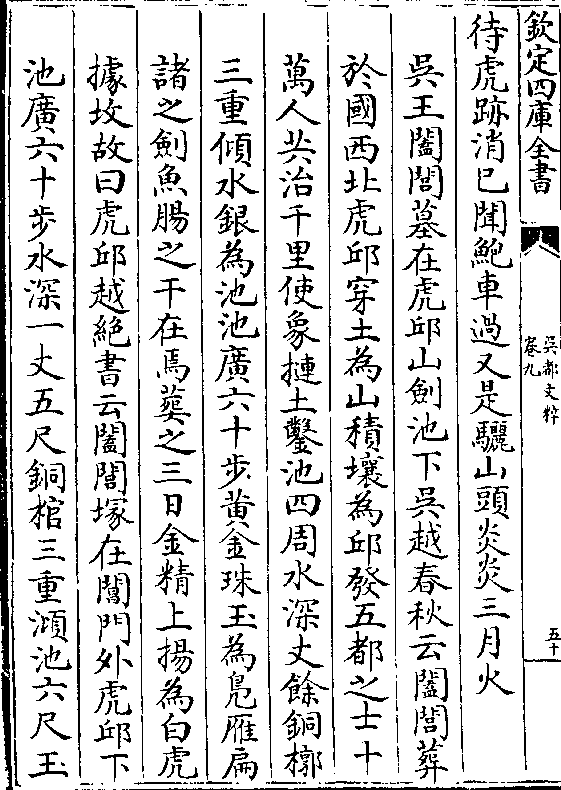 欽定四庫全書
吳都文粹
卷九
五十
待虎跡消已聞鮑車過又是驪山頭炎炎三月火
吳王闔閭墓在虎邱山劍池下吳越春秋云闔閭葬
於國西北虎邱穿土為山積壤為邱發五都之士十
萬人共治千里使象摙土鑿池四周水深丈餘銅槨
三重傾水銀為池池廣六十步黄金珠玉為鳬雁扁
諸之劍魚腸之干在焉葬之三日金精上揚為白虎
據坟故曰虎邱越絶書云闔閭塚在閶門外虎邱下
池廣六十步水深一丈五尺銅棺三重澒池六尺玉